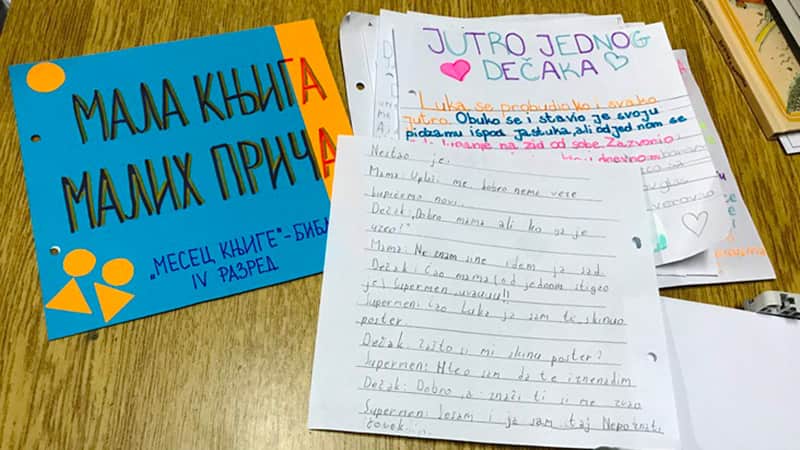 МАЛА КЊИГА
МАЛИХ ПРИЧА
„МЕСЕЦ КЊИГЕ“ - БИБЛ
IV РАЗРЕД
JUTRO JEDNOG
DEČAKA
Luka se probudio kao i svako
jutro. Obuko se i stavio je svoju
pidžamu ispod jastuka, ali odjednom se
lupanje na zid od sobe. Zazvonio
dnevnom
Nestao je.
Mama: Uplaši me dobro nema veze
kupićemo novi.
Dečak: „Dobro mama ali ko ga je
uzeo?"
Mama: Ne znam sine idem ja sad
Dečak: Ćao mama (od jednom stigao
je) Supermen, uvauuu!!
Supermen: Ćao Luka ja sam ti skinuo
poster.
Dečak: Zašto si mi skinu poster?
Supermen: Hteo sam da te iznenadim
Dečak: Dobro znači ti si me zvao
Supermen: Jesam i ja sam taj Nepoznati
čovek...